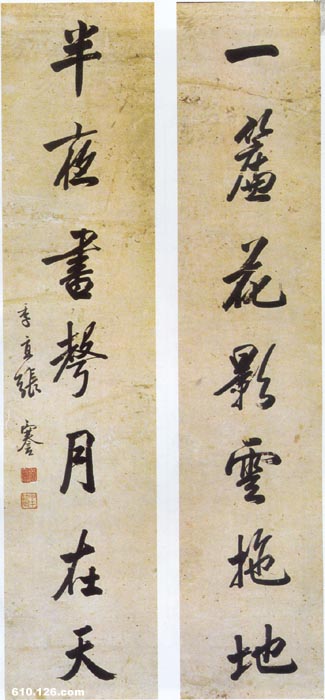 一簾花影雲拖地
半夜書聲月在天
季直張謇
610.126.com